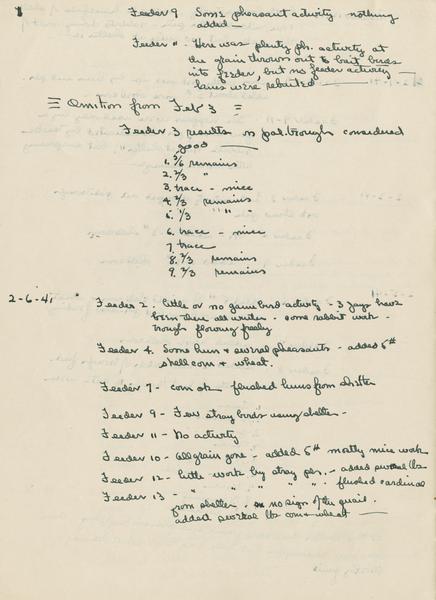 Feeder 9 Some pheasant activity. nothing
added —
Feeder 11 - Here was plenty ph. activity at
the grain thrown out to bait birds
into feeder, but no feeder activity —
lures were rebaited —
Omition from Feb 3
Feeder 3 results in pat. trough considered
good —
1. 5/6 remains
2. 2/3 "
3. trace - mice
4. 2/3 remains
5. 1/3 " " "
6. trace - mice
7. trace
8. 2/3 remains
9. 2/3 remains
2-6-41
Feeder 2. little or no game bird activity - 3 jays have
been there all winter - some rabbit work -
trough flowing freely
Feeder 4. Some huns & several pheasants - added 5#
shell corn & wheat.
Feeder 7 - corn ok flushed huns from shelter
Feeder 9 - Few stray birds using shelter -
Feeder 11 - No activity
Feeder 10 - All grain gone - added 5# mostly mice work
Feeder 12 - little work by stray phs. - added several lbs
Feeder 13 - " " " " " flushed cardinal
from shelter - no sign of the quail.
added several lbs corn & wheat —